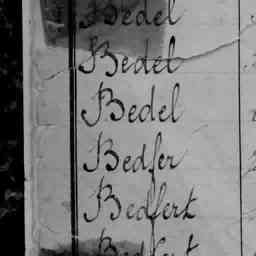 Bedel
Bedel
Bedel
Bedfer
Bedfert
Bedfert